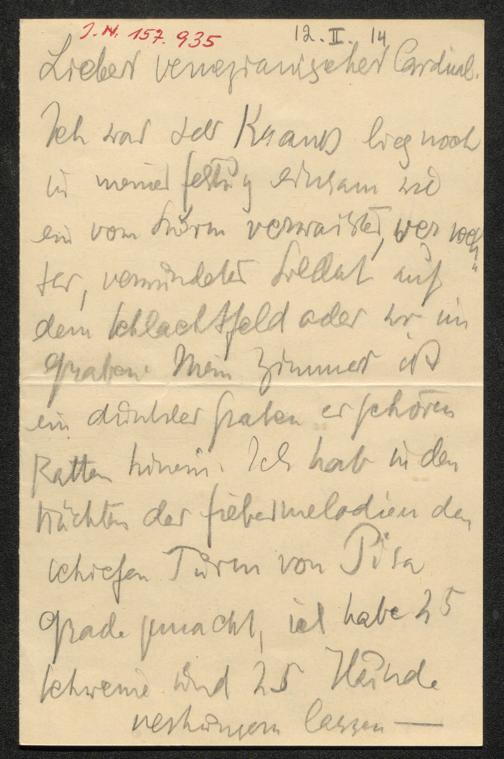 J.N. 157.935
12.II.14
Lieber venezianischer Cardinal.
Ich war der Krank lieg noch
in meiner einsam wie
ein vom Sturm verwaister, ver
ter, verwundeter Soldat auf
dem Schlachtfeld oder wo im
Graben. Mein Zimmer ist
ein dunkler Graben er gehören
Ratten hinein. Ich hab in den
Nächten der Fiebermelodien den
schiefen Turm von Pisa
Grade gemacht, ich habe 25
Schweine und 25 Hunde
verhungern lassen —